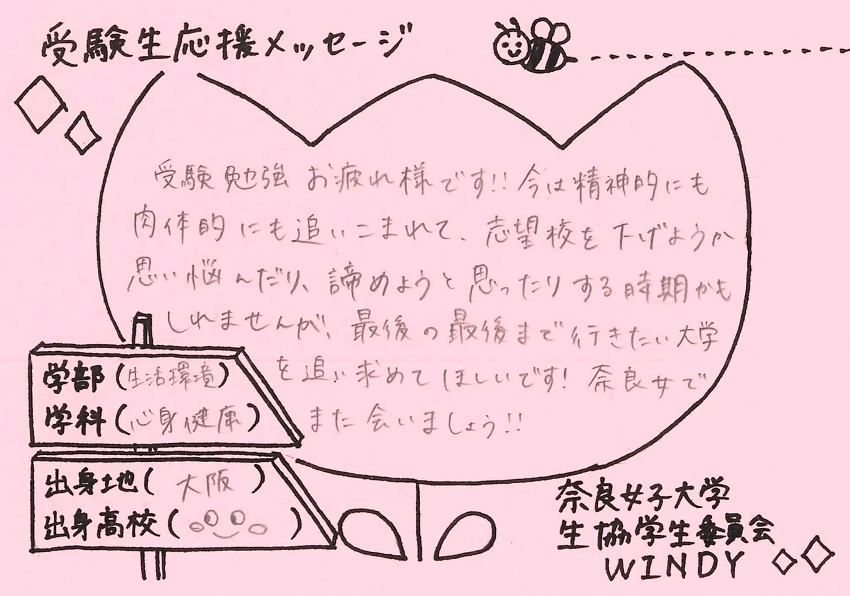 受験生応援メッセージ
受験勉強お疲れ様です!!今は精神的にも
肉体的にも追いこまれて、志望校を下げようか
思い悩んだり、諦めようと思ったりする時期かも
しれませんが、最後の最後まで行きたい大学
を追い求めてほしいです!奈良女で
また会いましょう!!
学部(生活環境)
学科(心身健康)
出身地(大阪)
出身高校( )
奈良女子大学
生協学生委員会
WINDY